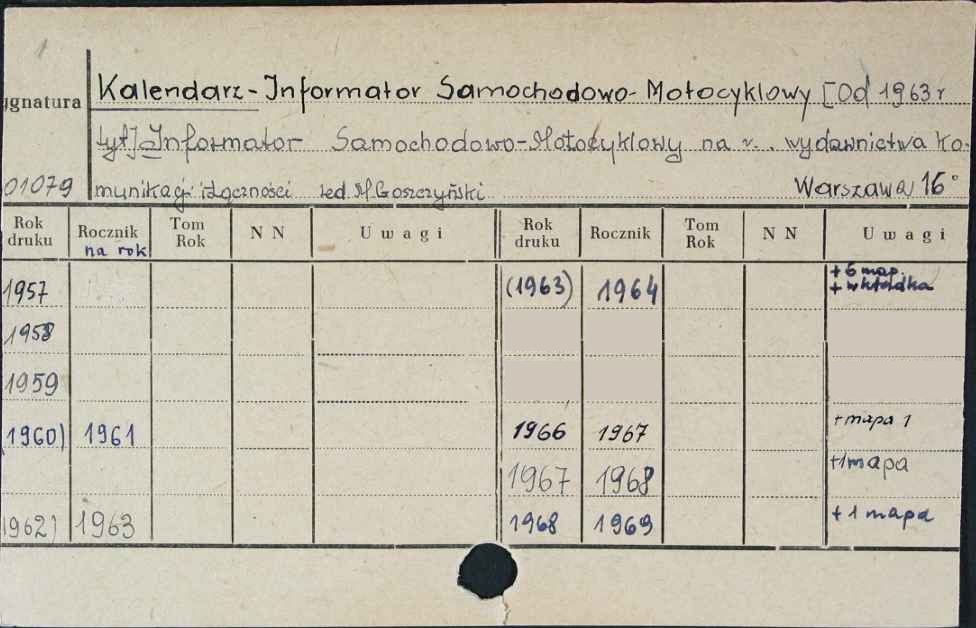 1
Kalendarz-Informator Samochodowo-Motocyklowy [Od 1963 r
ygnatura
tyt] Informator Samochodowo-Motocyklowy na r. wydawnictwa Ko-
01079 munikacji i Łączności red M. Goszczyński Warszawa 16°
Rok druku Rocznik na rok Tom Rok N N Uwagi Rok druku Rocznik Tom Rok N N Uwagi
1957 (1963) 1964 + 6 map. + wkładka
1958
1959
(1960) 1961 1966 1967 + mapa 1
1967 1968 +1mapa
1962) 1963 1968 1969 + 1 mapa